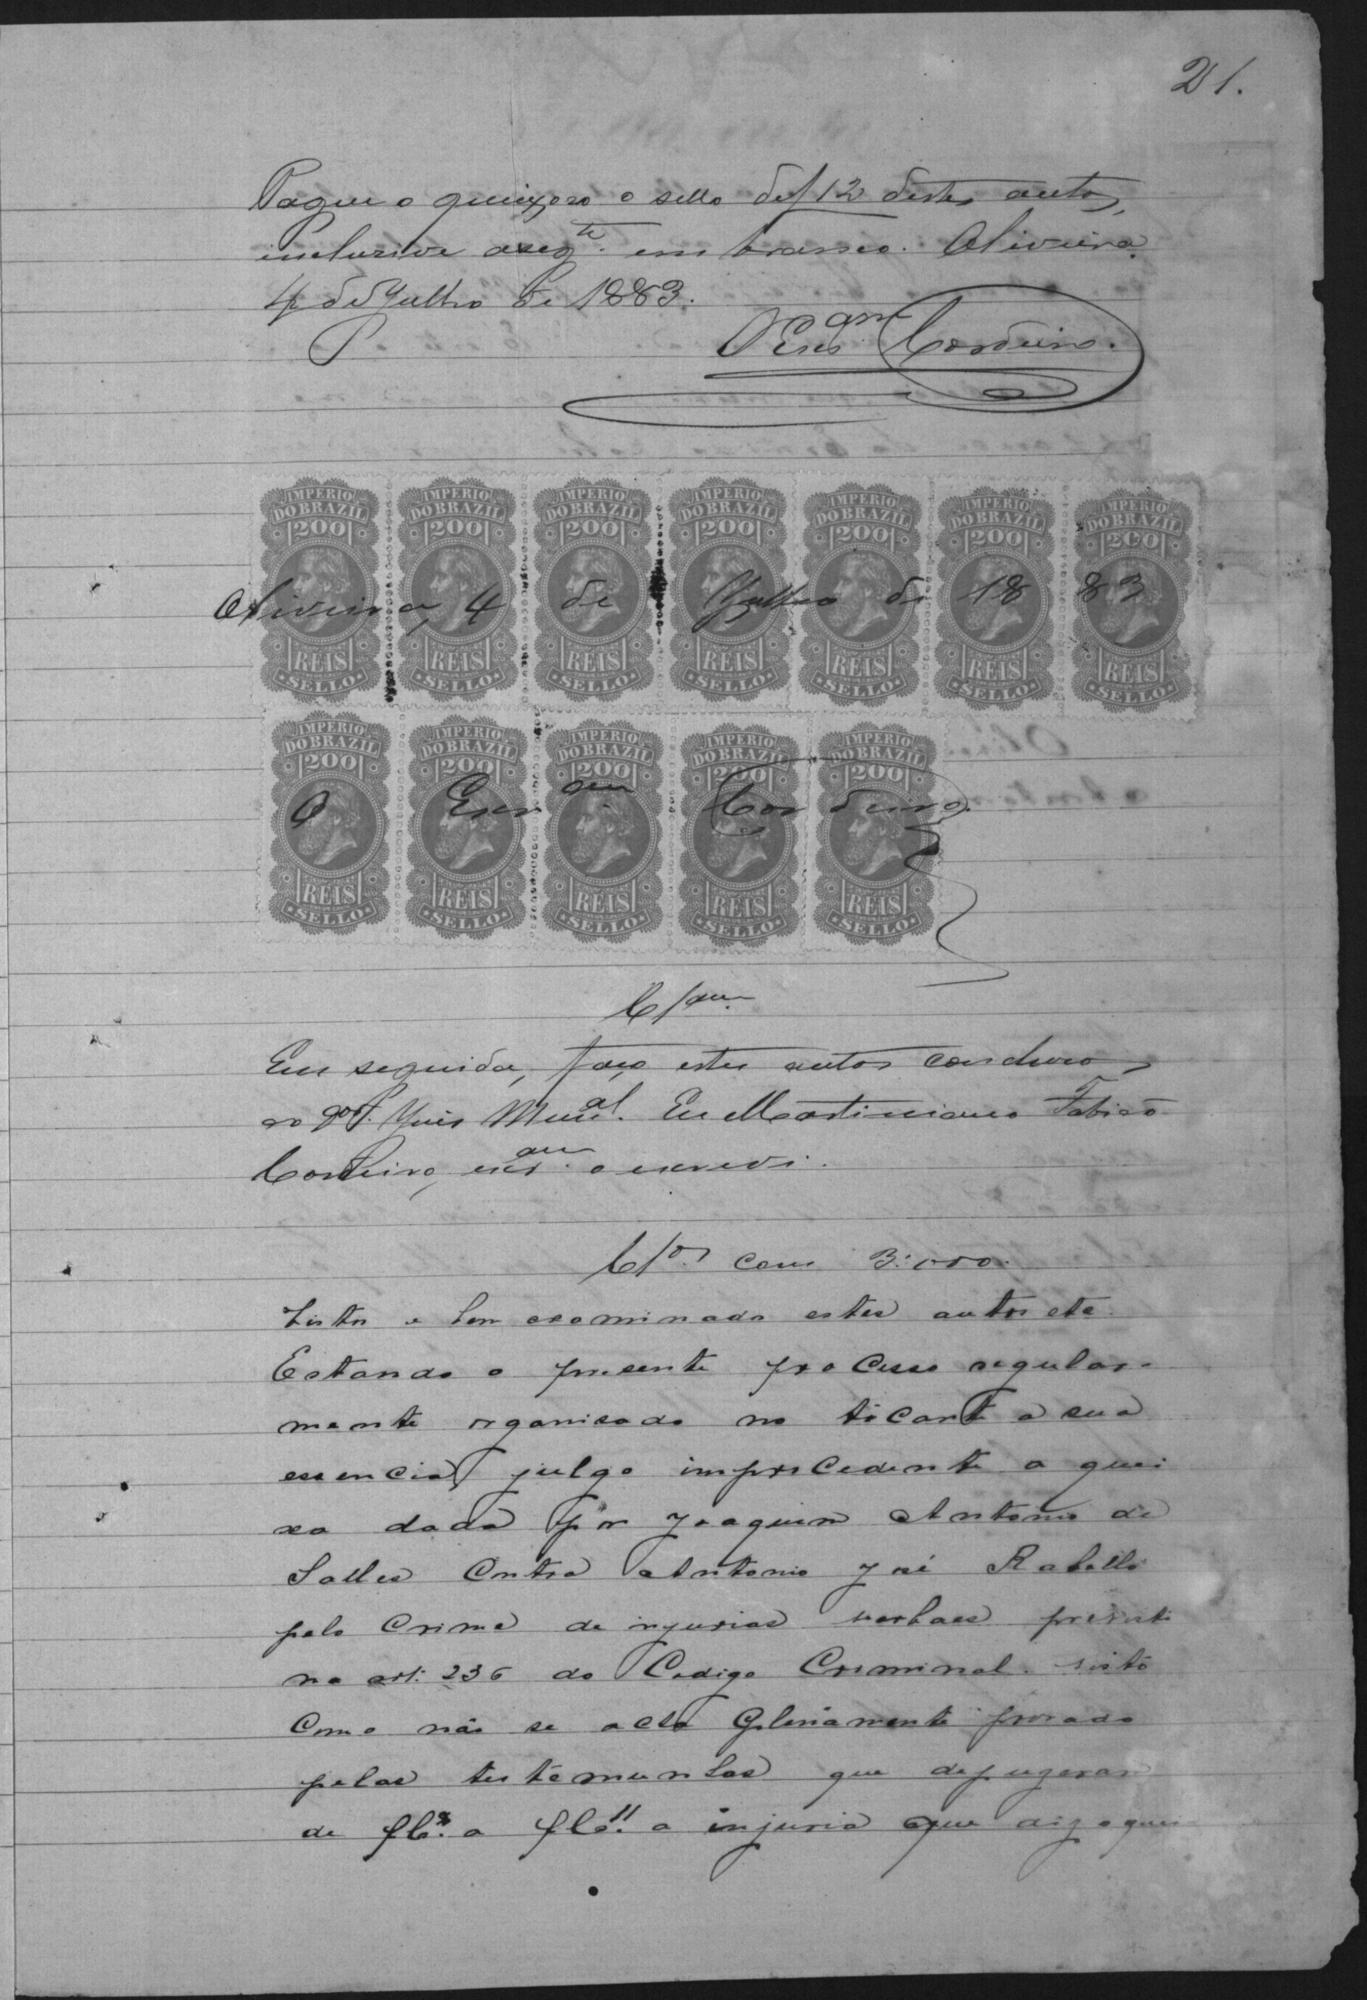 21.
Pague o queixoso o sello de f 12 destes autos,
inclusive a seg.te em branco. Oliveira
4 de Julho de 1883.
O Escr.am Cordeiro.
IMPERIO DO BRAZIL 200 REIS SELLO IMPERIO DO BRAZIL 200 REIS SELLO IMPERIO DO BRAZIL 200 REIS SELLO IMPERIO DO BRAZIL 200 REIS SELLO IMPERIO DO BRAZIL 200 REIS SELLO IMPERIO DO BRAZIL 200 REIS SELLO IMPERIO DO BRAZIL 200 REIS SELLO
Oliveira, 4 de Julho de 1883
IMPERIO DO BRAZIL 200 REIS SELLO IMPERIO DO BRAZIL 200 REIS SELLO IMPERIO DO BRAZIL 200 REIS SELLO IMPERIO DO BRAZIL 200 REIS SELLO IMPERIO DO BRAZIL 200 REIS SELLO
O Escr.am Cordeiro.
Cl.am
Em seguida, faço estes autos concluso
ao Dor. Juis Mun.al. Eu Martiniano Fabião
Cordeiro, escr.am o escrevi.
Cl.os com 3:000.
Vistos e bem examinado estes autos etc.
Estando o presente processo regular-
mente organisado no tocante a sua
essencia, julgo improcedente a quei
xa dada por Joaquim Antonio de
Salles Contra Antonio José Rabello
pelo Crime de injurias verbaes previsto
no art. 236 do Codigo Criminal. visto
Como não se acha plenamente provado
pelas testemunhas que depuzerão
de fls. 8 a fls. 11 a injuria que diz o quei